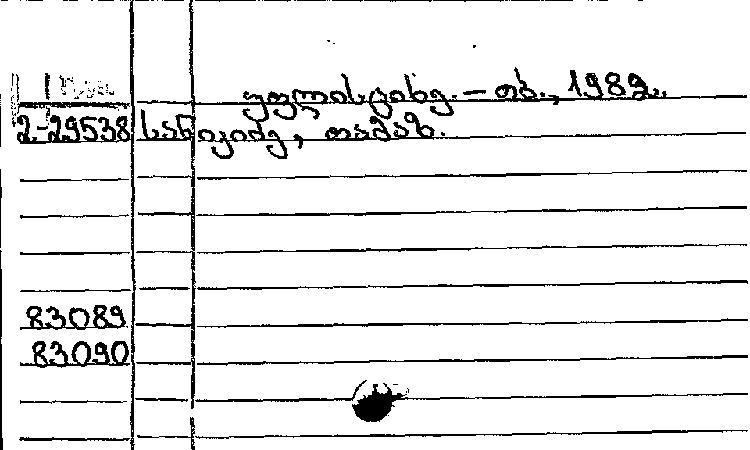 უფლისციხე. — თბ., 1989.
2-29538 სანიკიძე, თამაზ.
83089
83090